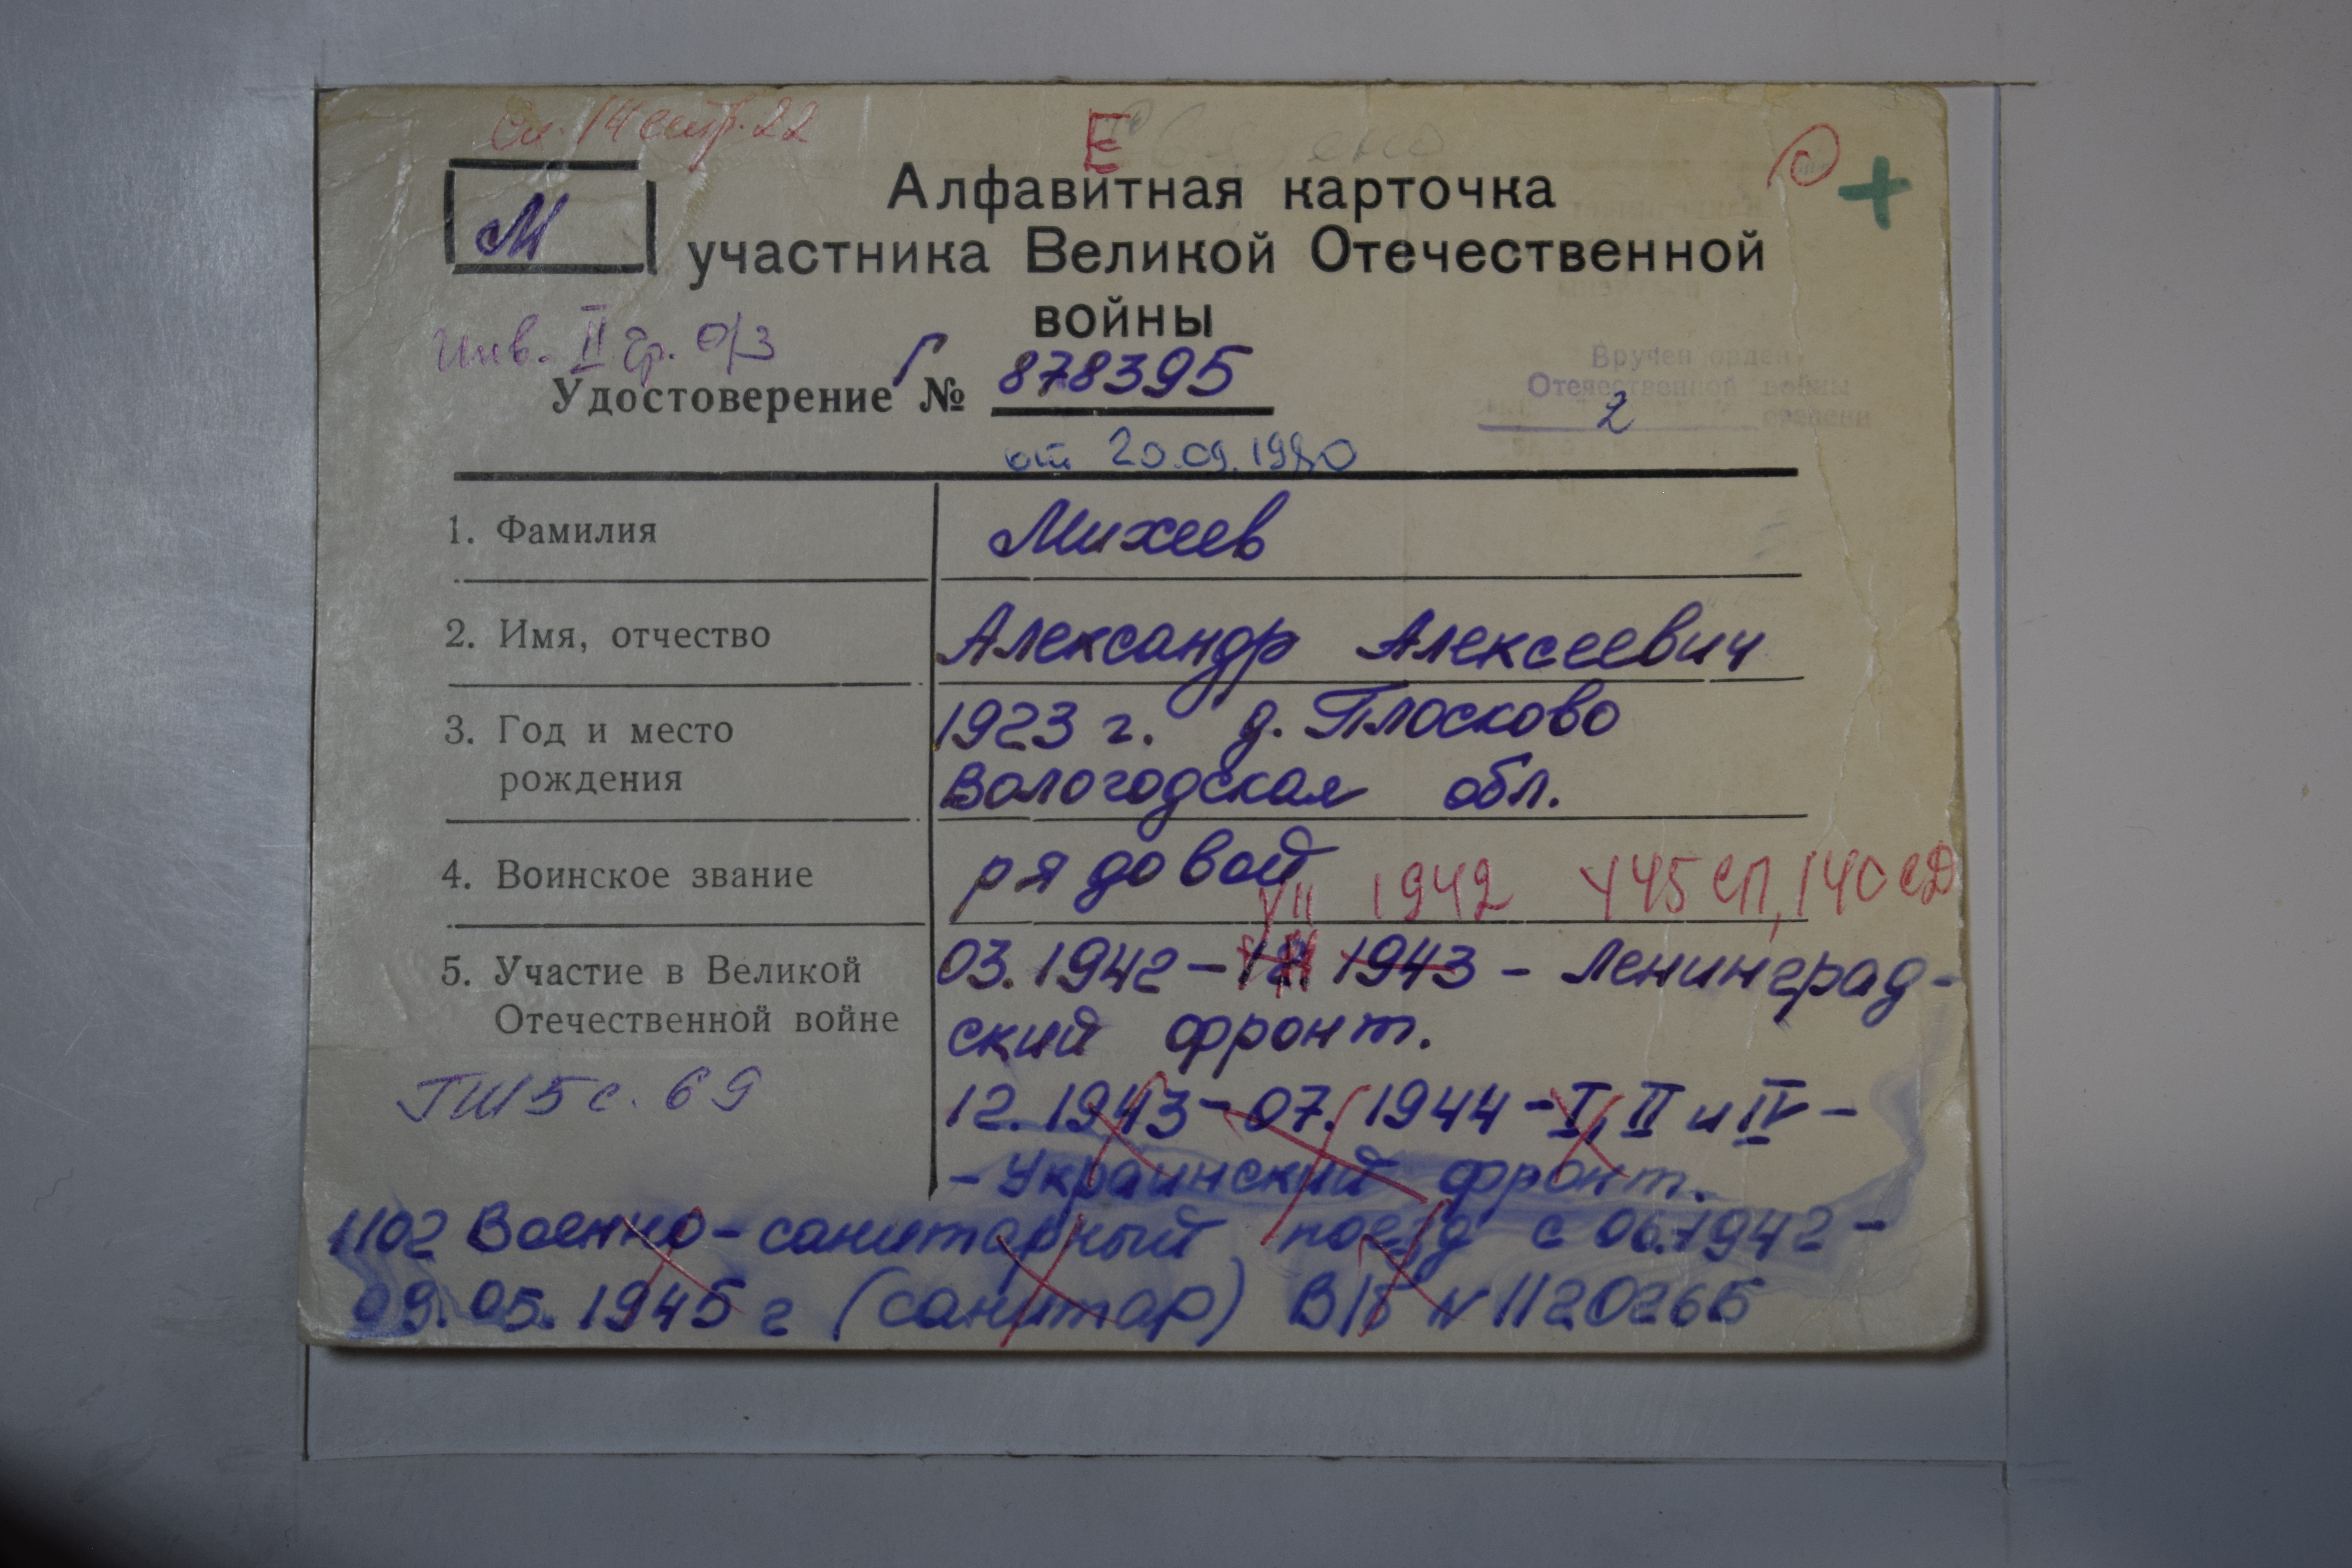 Сп. 14 стр. 22
Е
М
Алфавитная карточка
участника Великой Отечественной
войны
Инв. II гр. о/з
Удостоверение Г № 878395
от 20.09.1980
Вручен орден
Отечественной войны
2 степени
1. Фамилия
Михеев
2. Имя, отчество
Александр Алексеевич
3. Год и место
рождения
1923 г. д. Плосково
Вологодская обл.
4. Воинское звание
рядовой
VII 1942 445 СП, 140 СД
5. Участие в Великой
Отечественной войне
03.1942 – 1943 – Ленинград-
ский фронт.
ГШ 5 с. 69
12.1943 – 07.1944 – I, II и IV –
– Украинский фронт.
1102 Военно-санитарный поезд с 06.1942 –
09.05.1945 г (санитар) В/Б № 1120265